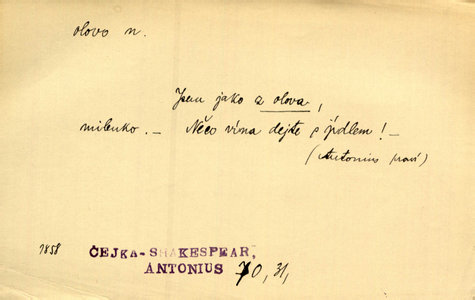 olovo n.
Jsem jako z olova,
milenko. – Něco vína dejte s jídlem! –
(Antonius praví)
1858
ČEJKA-SHAKESPEAR,
ANTONIUS 70, 31,